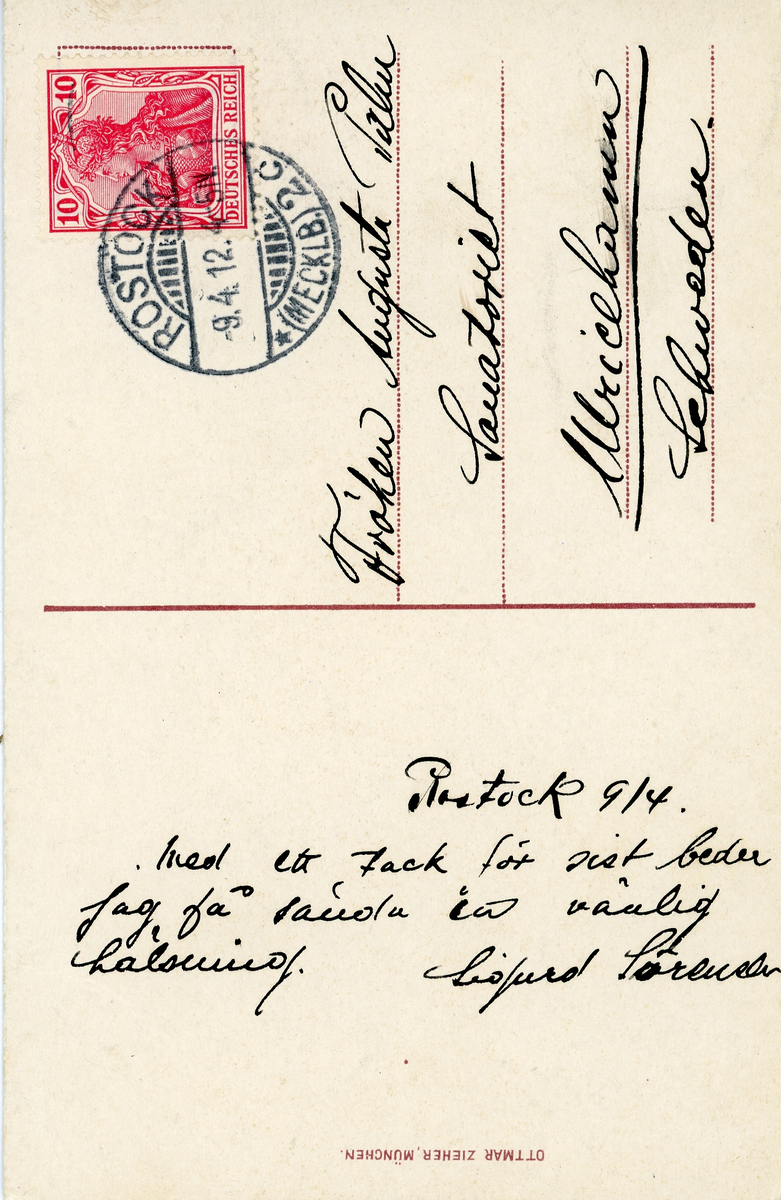 10 10
DEUTSCHES REICH
ROSTOCK
-9.4.12.
* (MECKLB.) 2 C
Fröken Augusta Palm
Sanatoriet
Ulricehamn
Schweden.
Rostock 9/4.
Med ett tack för sist beder
Jag få sända en vänlig
hälsning.
Sigurd Sörensen
OTTMAR ZIEHER, MÜNCHEN.